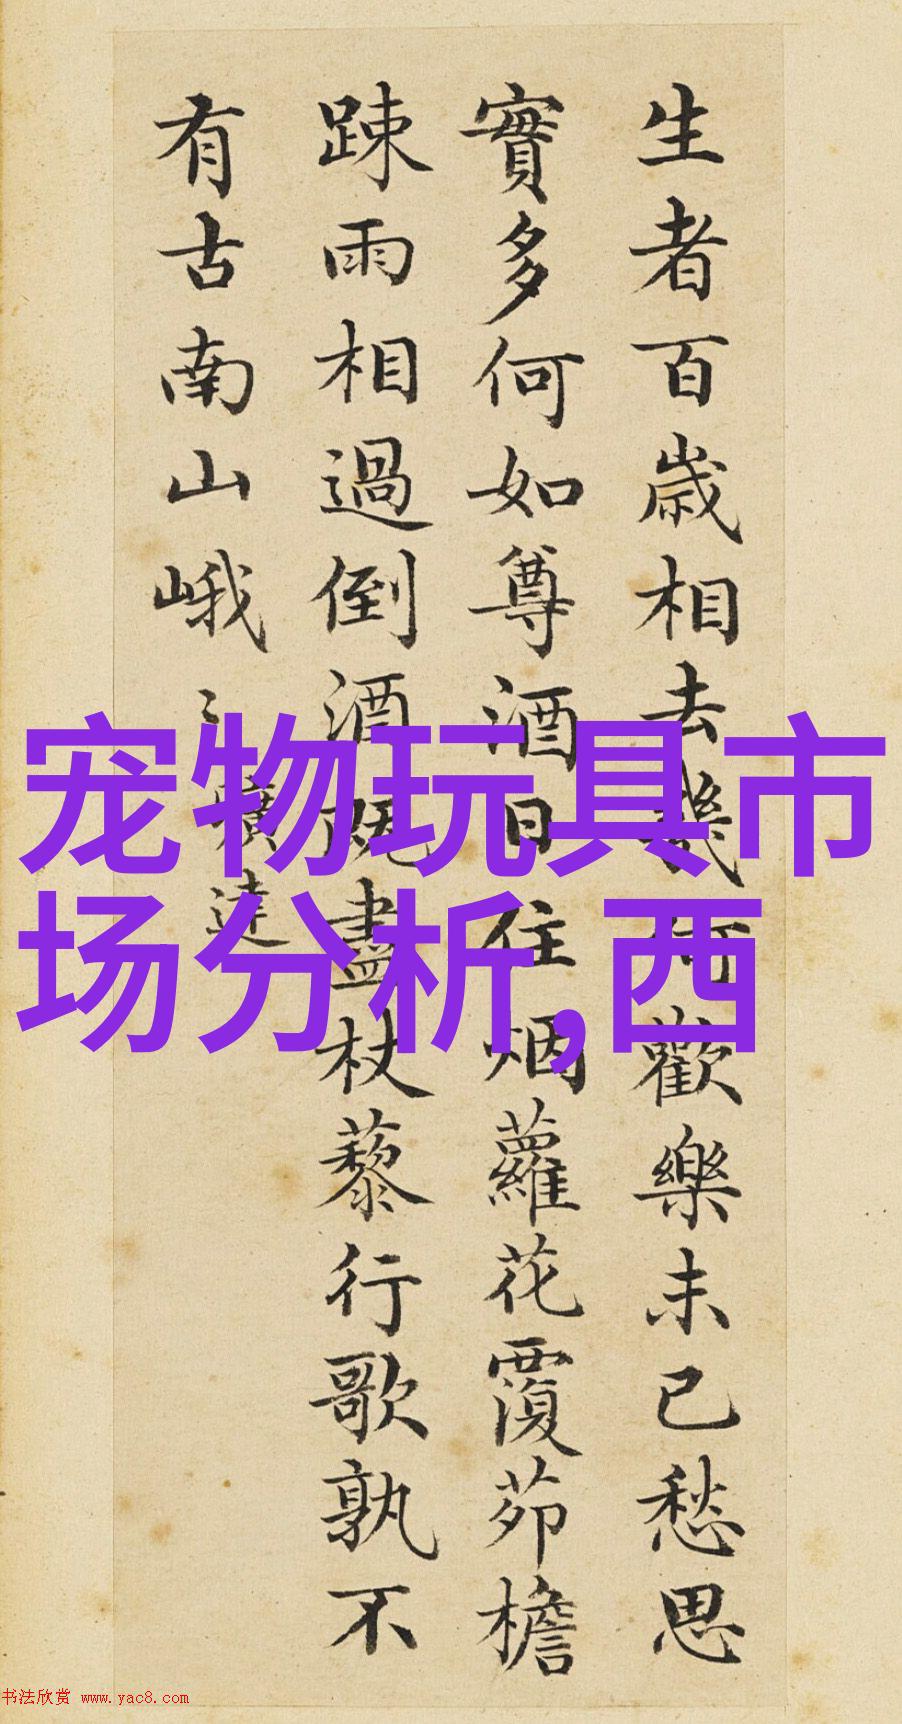 生者百歲相去幾何歡樂未已愁思
實多何如尊酒日往烟蘿花覆茆檐
踈雨相過倒酒既盡杖藜行歌孰不
有古南山峨〻
曠達
宠物玩具市
场分析,西
书法欣赏 www.yac8.com